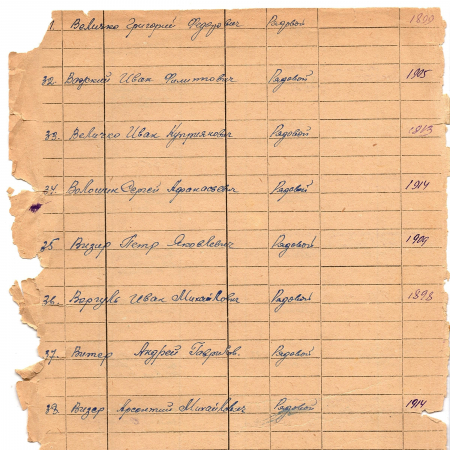 1. Величко Григорий Федорович Рядовой 1899
32. Вадский Иван Филиппович Рядовой 1905
33. Величко Иван Куприянович Рядовой 1913
34. Волошин Сергей Афанасьевич Рядовой 1914
35. Визир Петр Яковлевич Рядовой 1909
36. Варгуль Иван Михайлович Рядовой 1898
37. Витер Андрей Гаврилов. Рядовой
38. Визер Арсентий Михайлович Рядовой 1914